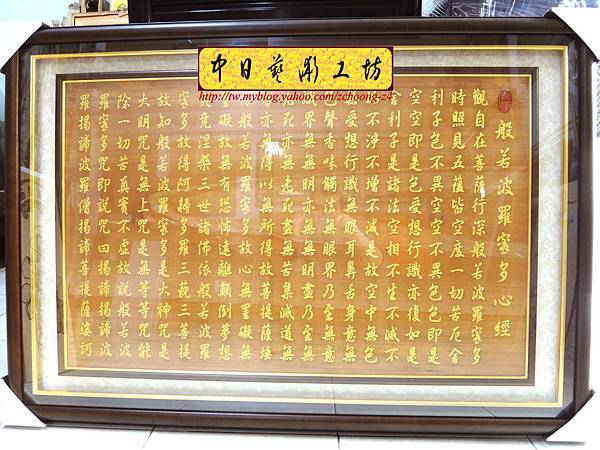 中日藝彫工坊
http://tw.myblog.yahoo.com/zchoong-z4
般若波羅蜜多心經
觀自在菩薩行深般若波羅蜜多
時照見五蘊皆空度一切苦厄舍
利子色不異空空不異色色即是
空空即是色受想行識亦復如是
舍利子是諸法空相不生不滅不
不淨不增不減是故空中無色
受想行識無眼耳鼻舌身意無
聲香味觸法無眼界乃至無意
界無無明亦無無明盡乃至無
死亦無老死盡無苦集滅道無
亦無得以無所得故菩提薩埵
般若波羅蜜多故心無罣礙無
礙故無有恐怖遠離顛倒夢想
究竟涅槃三世諸佛依般若波羅
蜜多故得阿耨多羅三藐三菩提
故知般若波羅蜜多是大神咒是
大明咒是無上咒是無等等咒能
除一切苦真實不虛故說般若波
羅蜜多咒即說咒曰揭諦揭諦波
羅揭諦波羅僧揭諦菩提薩婆訶